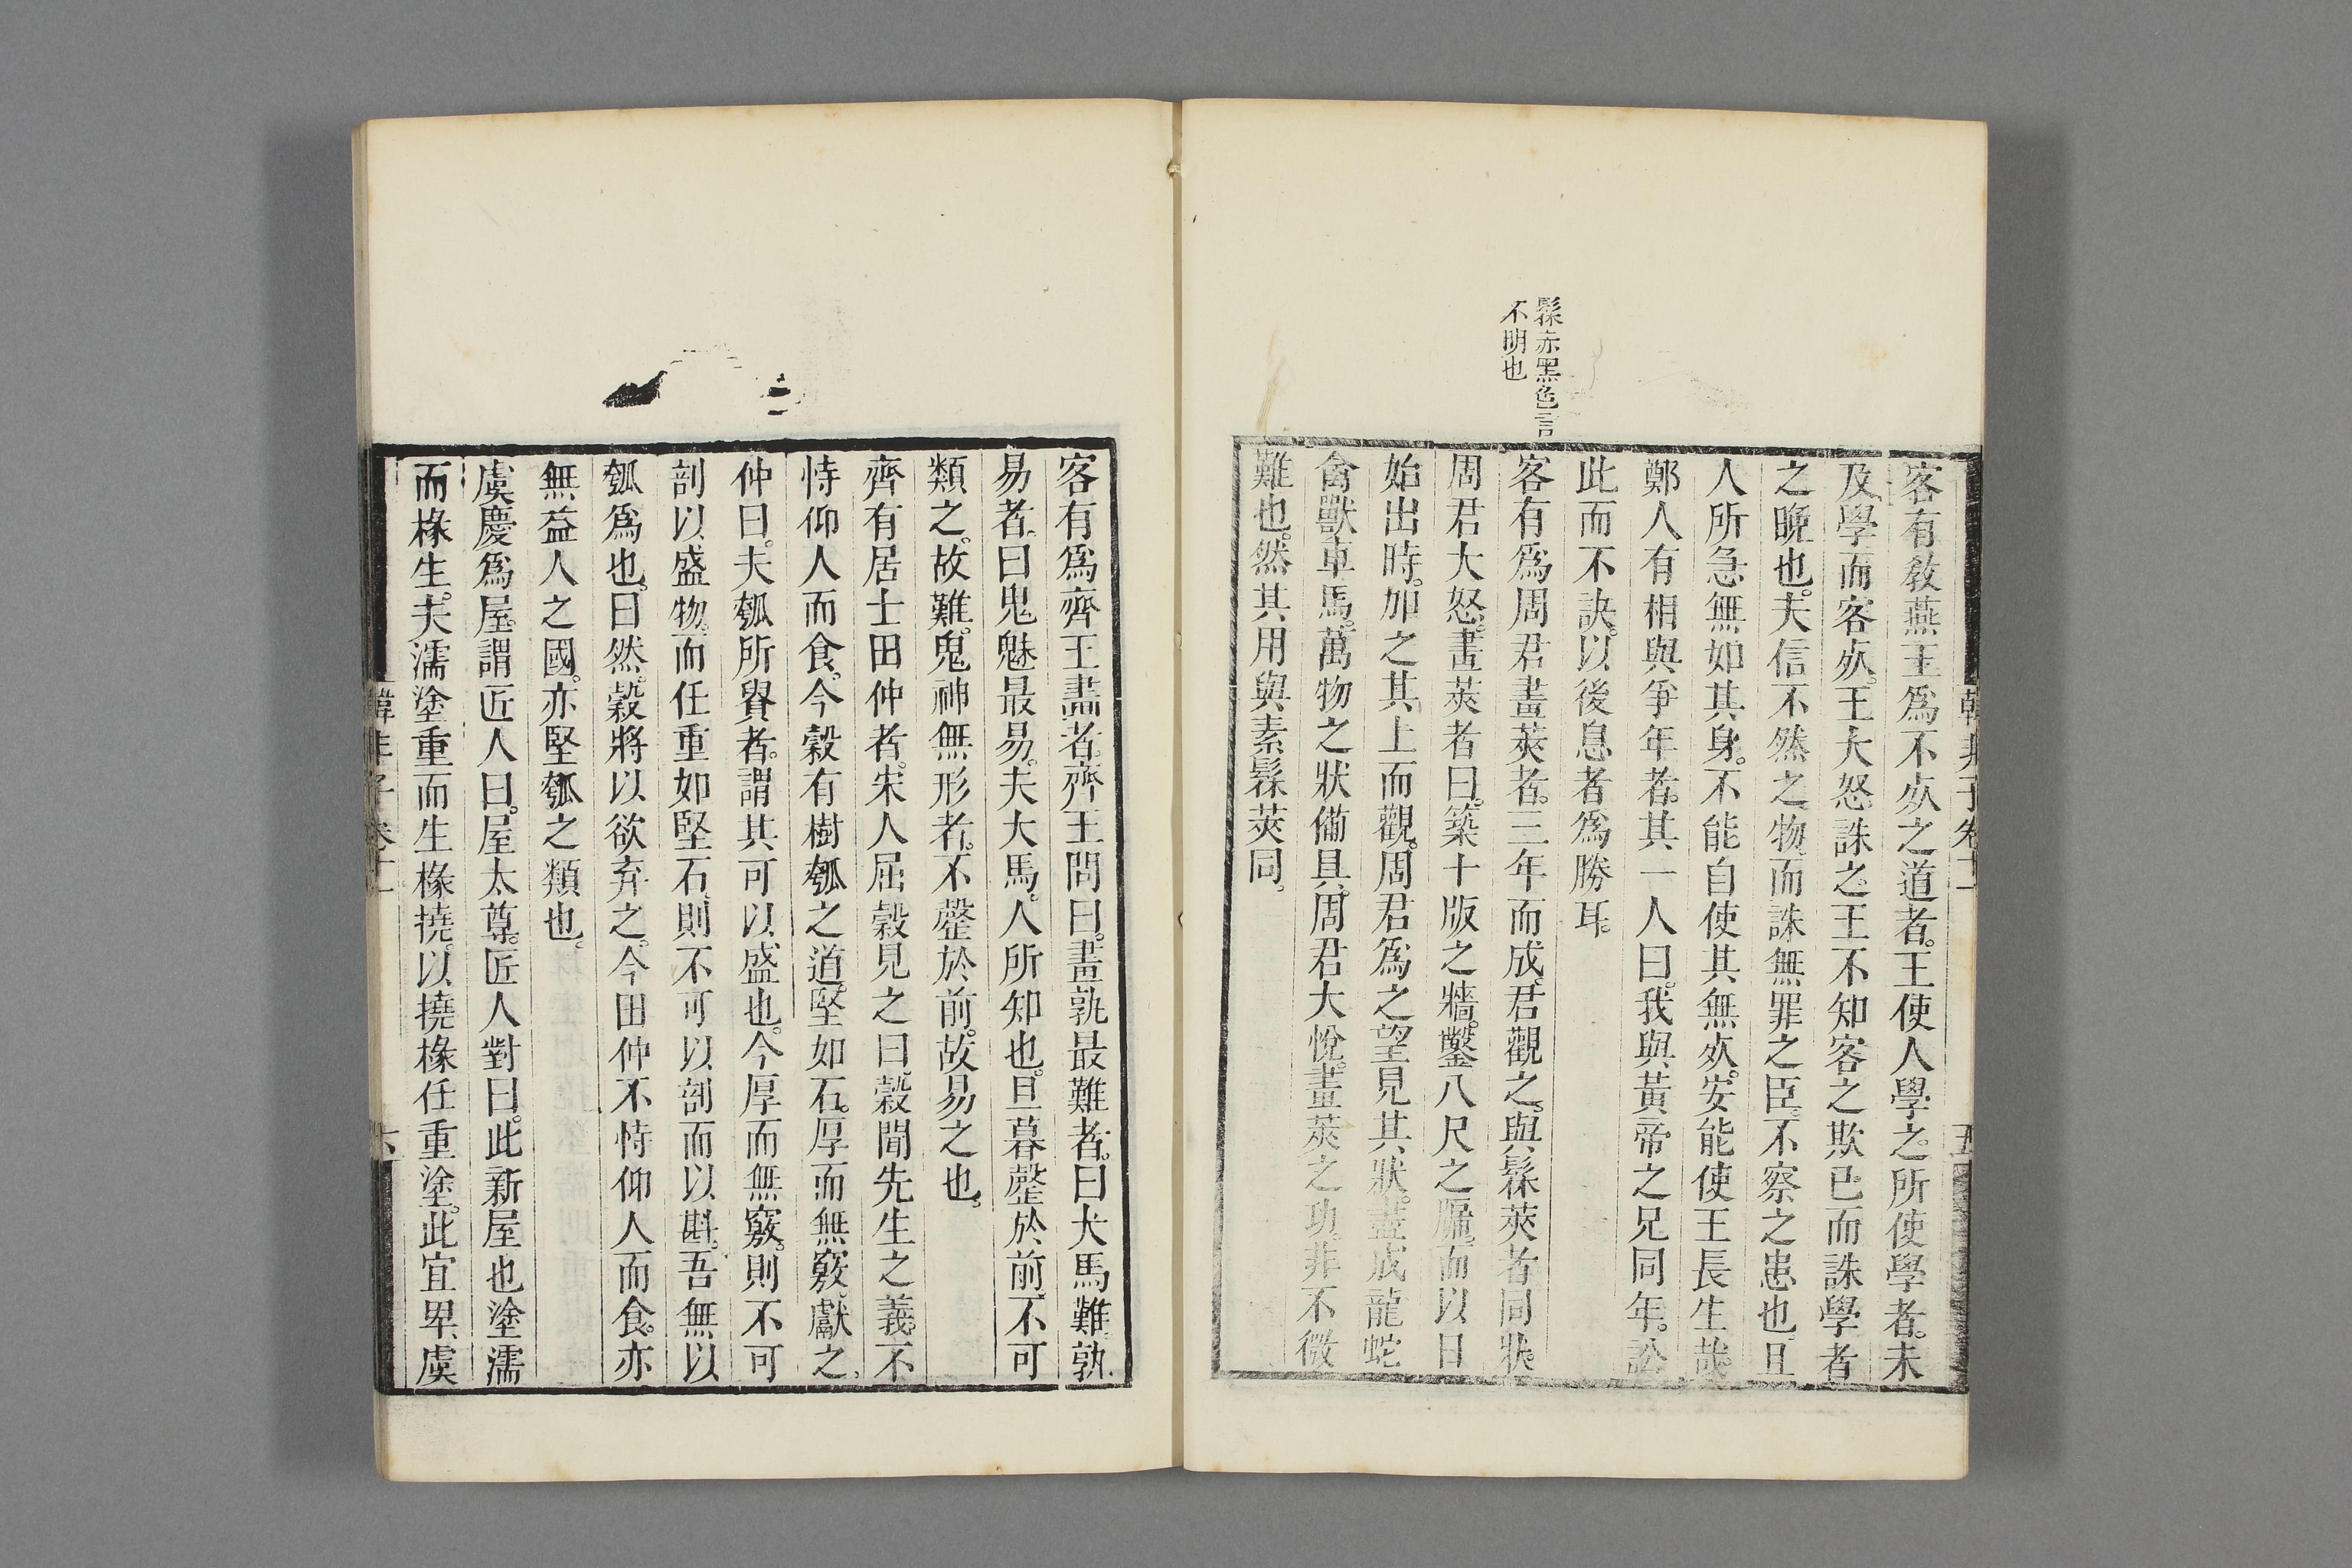 韓非子卷十一
五
客有教燕王爲不死之道者。王使人學之。所使學者。未
及學而客死。王大怒誅之。王不知客之欺已而誅學者
之晚也。夫信不然之物。而誅無罪之臣。不察之患也。且
人所急無如其身。不能自使其無死。安能使王長生哉。
鄭人有相與爭年者。其一人曰。我與黃帝之兄同年。訟
此而不訣。以後息者爲勝耳。
髹赤黑色言
不明也
客有爲周君畫莢者。三年而成。君觀之。與髹莢者同狀。
周君大怒。畫莢者曰。築十版之牆。鑿八尺之牖。而以日
始出時。加之其上而觀。周君爲之望見其狀。盡成龍蛇
禽獸車馬。萬物之狀備具。周君大悅。畫莢之功。非不微
難也。然其用與素髹莢同。
客有爲齊王畫者。齊王問曰。畫孰最難者。曰犬馬難。孰
易者。曰鬼魅最易。夫犬馬。人所知也。旦暮罄於前。不可
類之。故難。鬼神無形者。不罄於前。故易之也。
齊有居士田仲者。宋人屈穀見之曰。穀聞先生之義。不
恃仰人而食。今穀有樹瓠之道。堅如石。厚而無竅。獻之。
仲曰。夫瓠所貴者。謂其可以盛也。今厚而無竅。則不可
剖以盛物。而任重如堅石。則不可以剖而以斟。吾無以
瓠爲也。曰然。穀將以欲弃之。今田仲不恃仰人而食。亦
無益人之國。亦堅瓠之類也。
虞慶爲屋。謂匠人曰。屋太尊。匠人對曰。此新屋也塗濡
而椽生。夫濡塗重而生椽撓。以撓椽任重塗。此宜卑。虞
韓非子卷十一
六